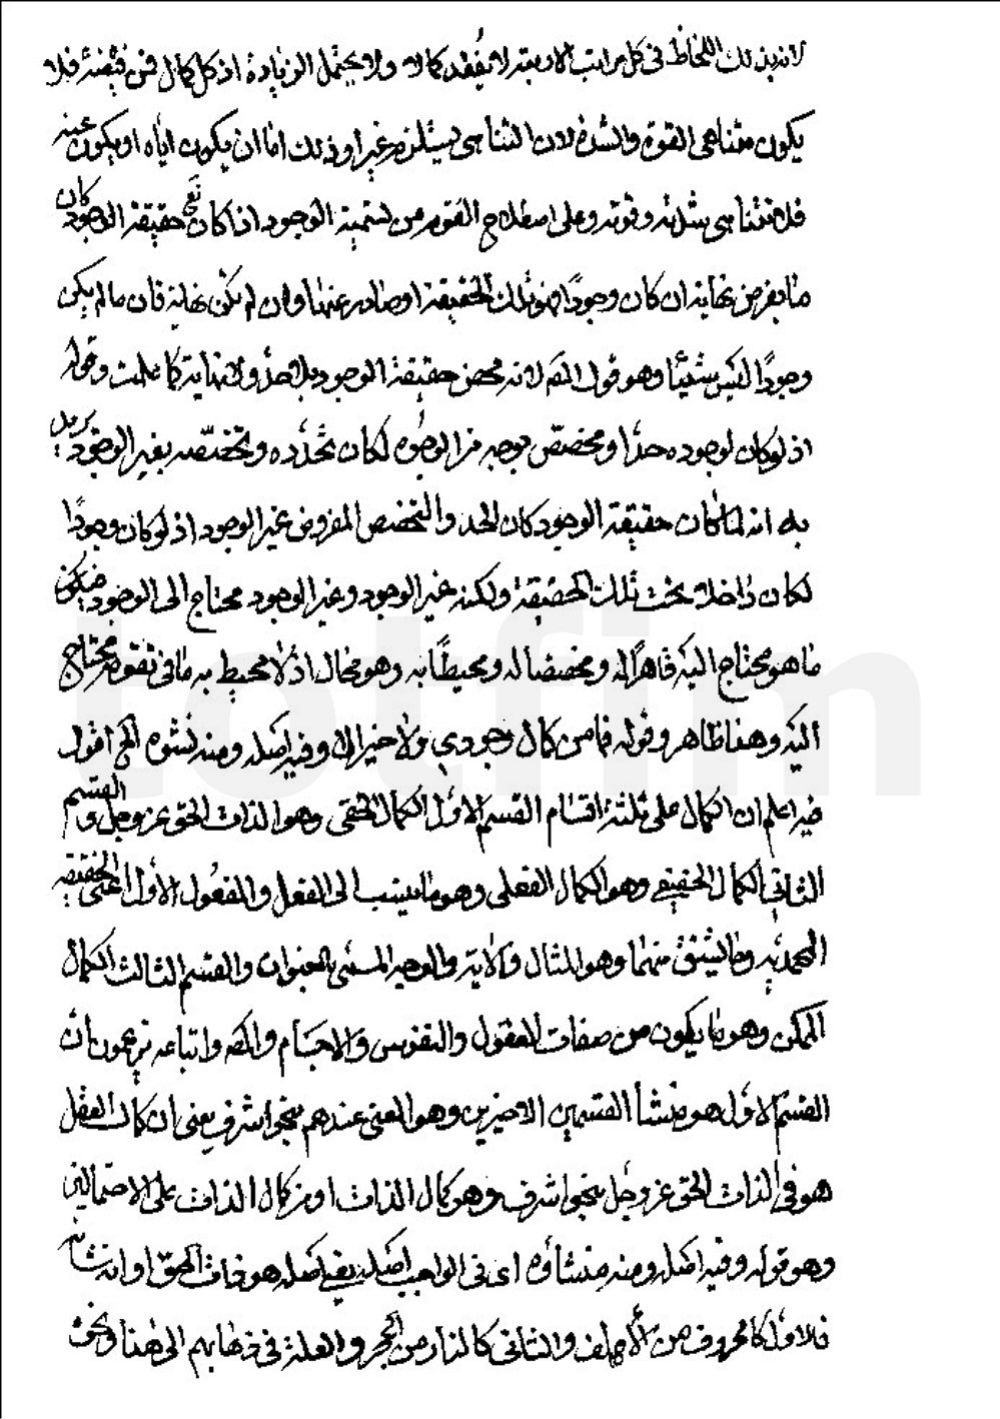 لانه بذلك اللحاظ فى كل مراتب الاربعة لا يفقد كمالا ولا يحتمل الزيادة اذ كل كمال فمن فيضه فلا
يكون متناهى القوة والشدة لان التناهى يستلزم غيرا وذلك اما ان يكون اياه او يكون عينه
فلا تتناهى شدته وقوته وعلى اصطلاح القوم من تسمية الوجود اذا كان تعالى حقيقة الوجود كان
ما يفرض نهاية ان كان وجودًا فهو تلك الحقيقة او صادر عنها وان لم يكن نهاية فان ما لم يكن
وجودًا ليس شيئا وهو قول المص لانه محض حقيقة الوجود بلا حد ولا نهاية كما علمت وقوله
اذ لو كان لوجوده حد او تخصص بوجه من الوجوه لكان تحدده وتخصصه بغير الوجود يريد
به انه لما كان حقيقة الوجود كان الحد والتخصص المفروض غير الوجود اذ لو كان وجودًا
لكان داخلا تحت تلك الحقيقة ولكنه غير الوجود وغير الوجود محتاج الى الوجود فيكون
ما هو محتاج اليه قاهرًا له ومخصصا له ومحيطًا به وهو محال اذ لا محيط به ما فى تقومه محتاج
اليه وهذا ظاهر وقوله فما من كمال وجودى ولا خير الا وفيه اصله ومنه نشوه الخ اقول
فيه اعلم ان الكمال على ثلثة اقسام القسم الاول الكمال الحقى وهو الذات الحق عز وجل والقسم
الثانى الكمال الحقيقى وهو الكمال الفعلى وهو ما ينسب الى الفعل والمفعول الاول اعنى الحقيقة
المحمدية وما يشتق منهما وهو المثال والاية والوجه المسمى بالعنوان والقسم الثالث الكمال
الممكن وهو ما يكون من صفات العقول والنفوس والاجسام والمص واتباعه يزعمون ان
القسم الاول هو منشأ القسمين الاخيرين وهو المعنى عندهم بنحو اشرف يعنى ان كمال العقل
هو فى الذات الحق عز وجل بنحو اشرف وهو كمال الذات او من كمال الذات على الاحتمالين
وهو قوله وفيه اصله ومنه منشأوه اى فى الواجب اصله يعنى اصله هو ذات الحق او انه نشأ منه
فالاول كالحروف من الالف والثانى كالنار من الحجر والعلة فى ذهابهم الى هذا ونحن